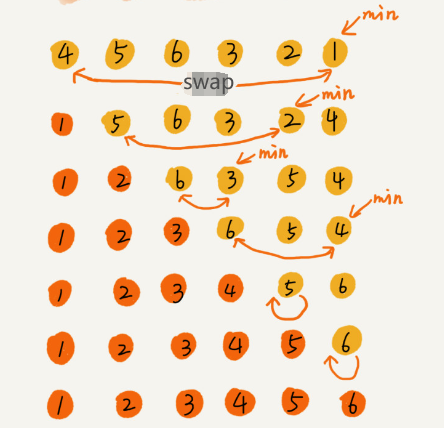 min
4 5 6 3 2 1
swap
min
1 5 6 3 2 4
min
1 2 6 3 5 4
min
1 2 3 6 5 4
1 2 3 4 5 6
1 2 3 4 5 6
1 2 3 4 5 6